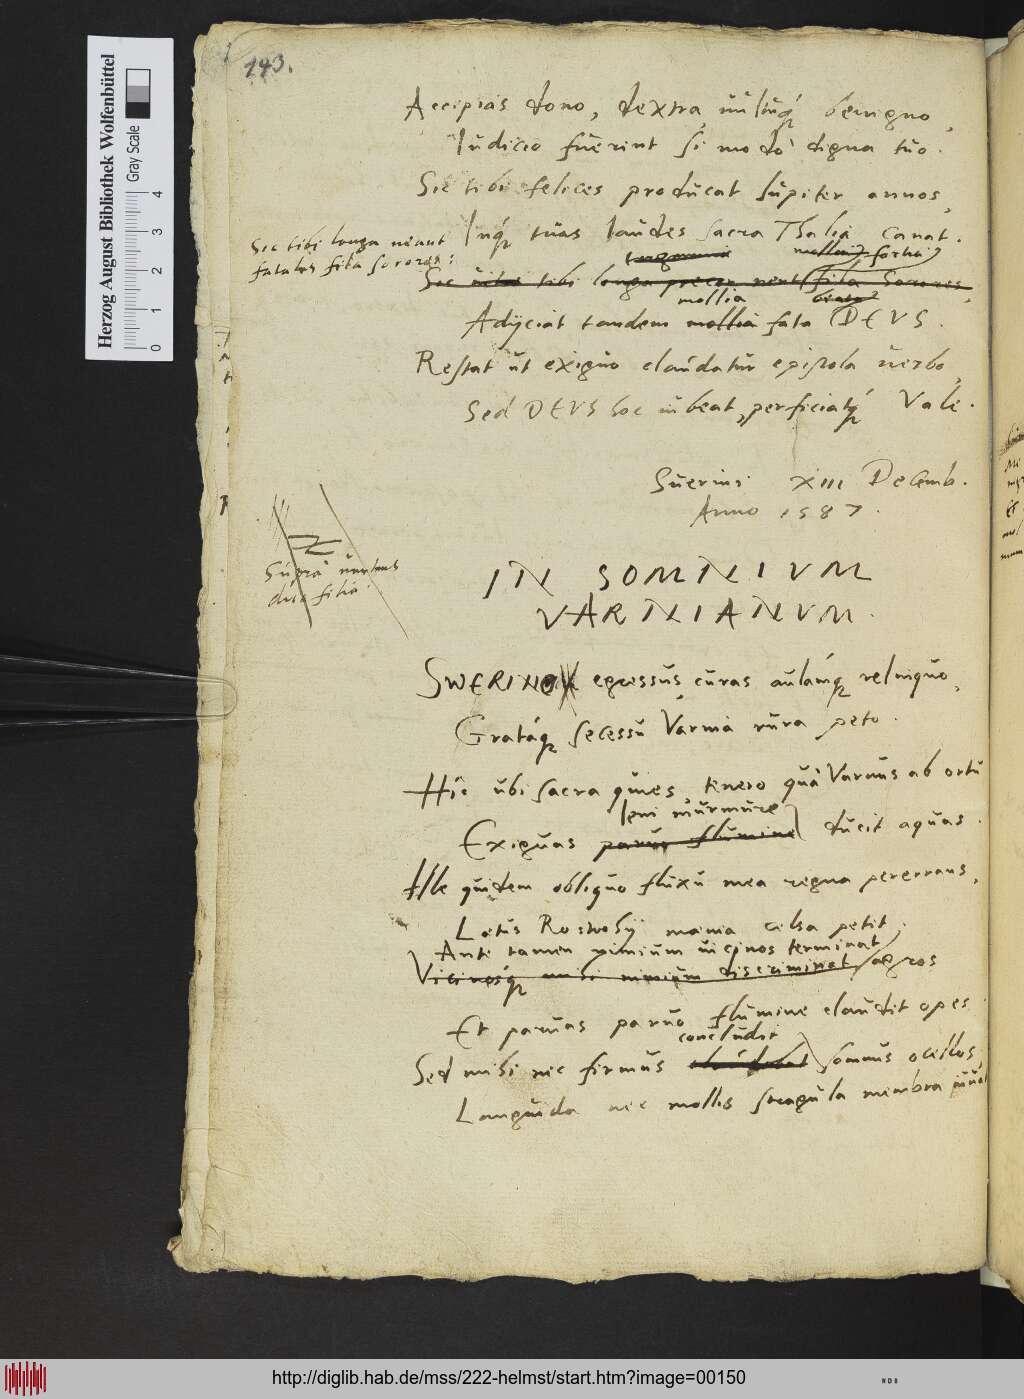 143.
Accipias dono, dextra, benigno,
Iudicio fuerint si modò digna tuo.
Sic tibi felices producat Iupiter annos,
Inq́ tuas laudes sacra Thalia canat.
Sic tibi longa neant
fatales fila sorores:
mollia fortia
Sic tibi longa precor nent fila Sorores.
mollia
Adijciat tandem mollia fata DEVS.
Restat ut exiguo claudatur epistola uerbo,
Sed DEVS hoc iubeat, perficiatq́ Vale.
Suerini XIII Decemb.
Anno 1587.
Suprà
duo filia
IN SOMNIVM
VARNIANVM.
SWERINO egressus curas aulamq́ relinquo,
Gratáq́ secessu Varnia rura peto.
Hîc ubi sacra quies, tenero quà Varnus ab ortu
leni murmure
Exiguas paruo flumine ducit aquas.
Ille quidem obliquo fluxu mea regna pererrans,
Latus Rostochij mænia celsa petit.
Ante tamen nimium uicinos terminat
Vicinosq́ nimium discriminat agros
Et paruas paruo flumine claudit opes.
concludit
Sed mihi nec firmus claudebat somnus ocellos,
Languida nec mollis membra
Herzog August Bibliothek Wolfenbüttel
Gray Scale
0 1 2 3 4
http://diglib.hab.de/mss/222-helmst/start.htm?image=00150